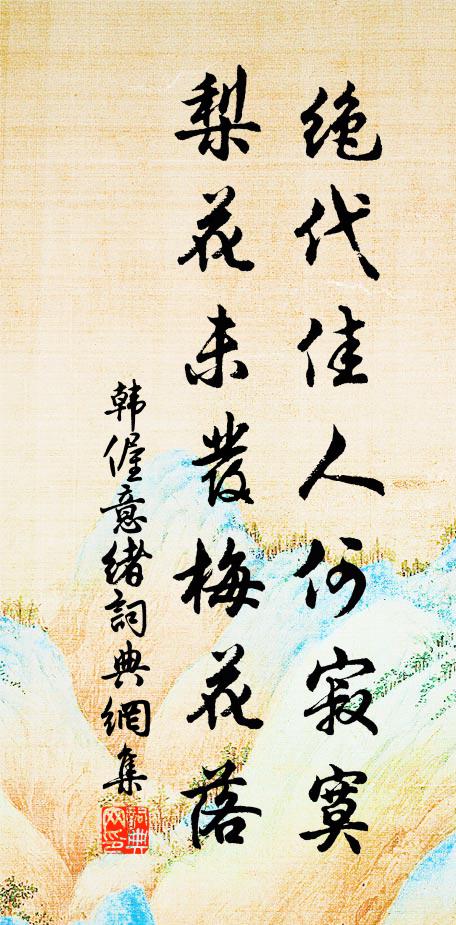 绝代佳人何寂寞
梨花未发梅花落
韩偓意绪词典网集
词典
网印